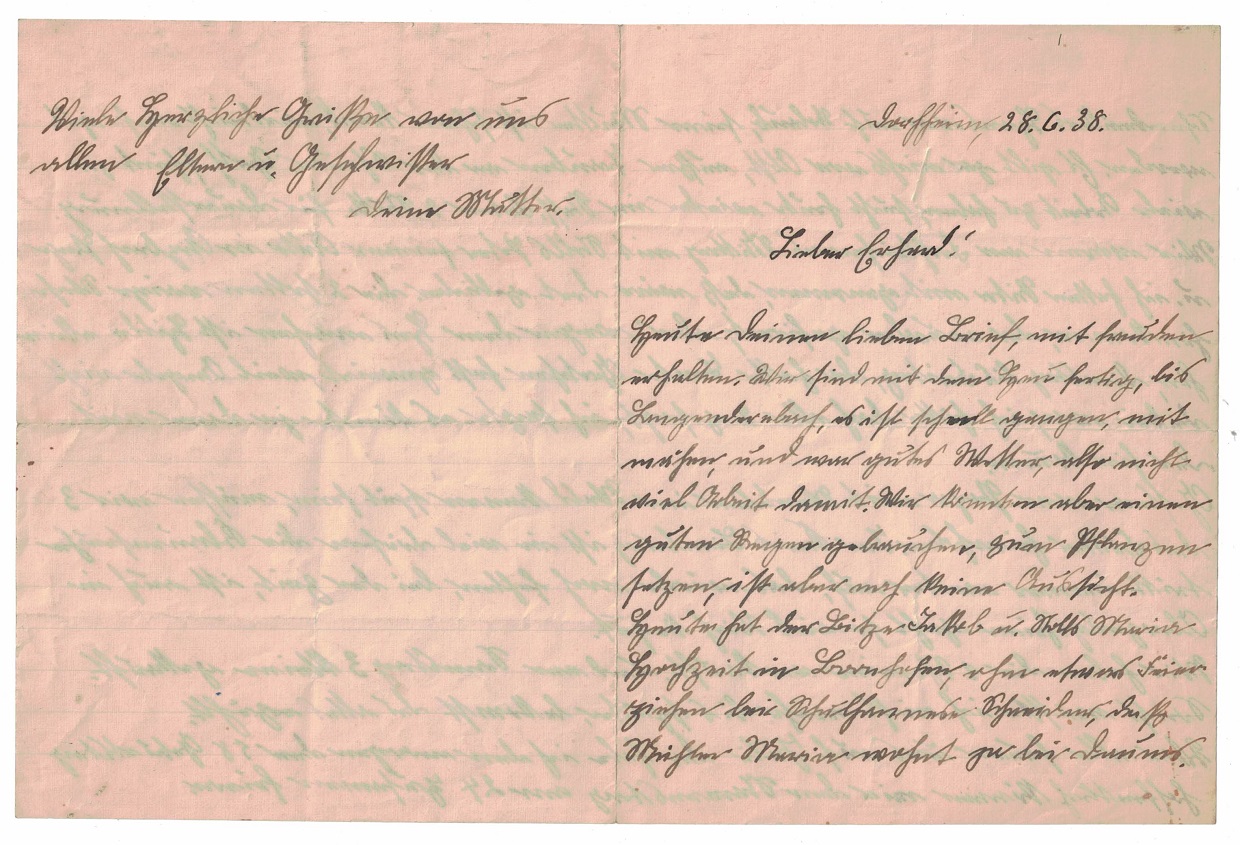 Viele Herzliche Grüße von uns
allen Eltern u. Geschwister
Deine Mutter.
Dorchheim, 28.6.38.
Lieber Erhard!
Heute Deinen lieben Brief, mit freuden
erhalten. Wir sind mit dem Heu fertig, bis
Langendernbach, es ist schnell gangen, mit
mähen, und war gutes Wetter, also nicht
viel Arbeit damit. Wir könnten aber einen
guten Regen gebrauchen, zum Pflanzen
setzen, ist aber noch keine Aussicht.
Heute hat der Jakob u. Maria
Hochzeit in Bornhofen, ohne etwas Feier
ziehen bei Schneider, das
Maria wohnt ja bei